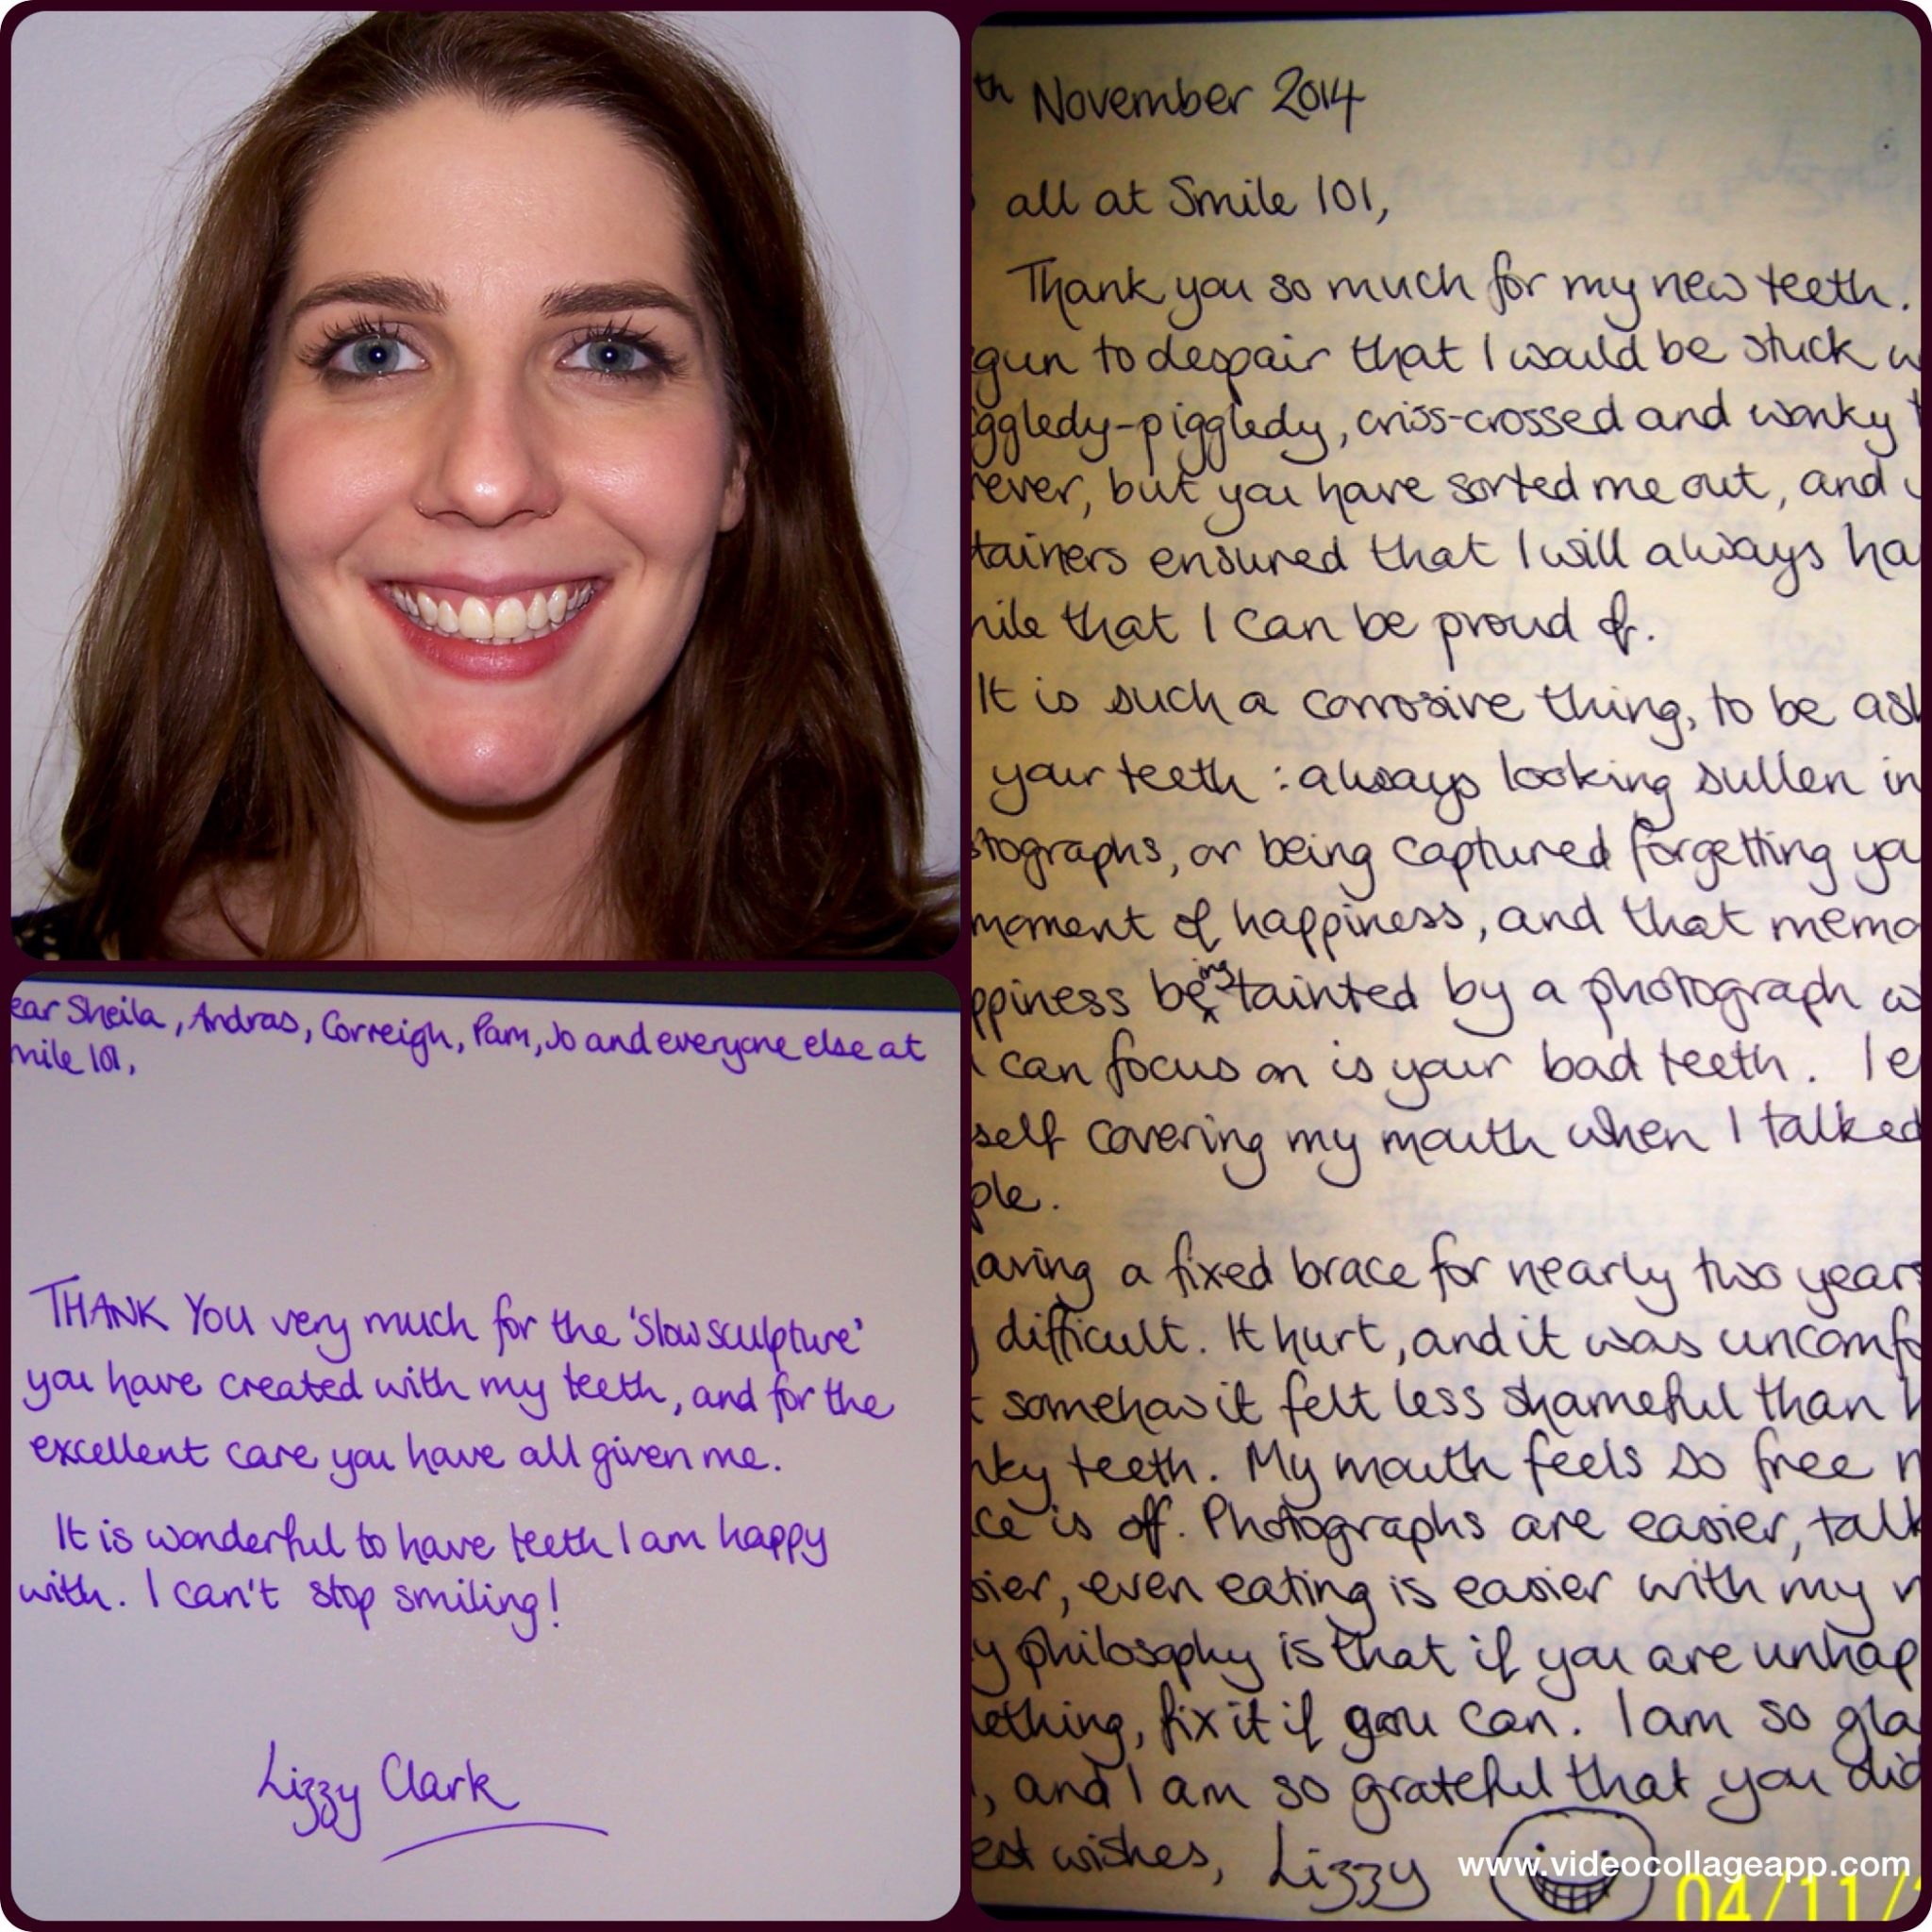 ear Sheila, Andras, Correigh, Pam, Jo and everyone else at
mile 101,
THANK YOU very much for the 'slow sculpture'
you have created with my teeth, and for the
excellent care you have all given me.
It is wonderful to have teeth I am happy
with. I can't stop smiling!
Lizzy Clark
th November 2014
all at Smile 101,
Thank you so much for my new teeth.
gun to despair that I would be stuck w
ggledy-piggledy, criss-crossed and wonky t
rever, but you have sorted me out, and
tainers ensured that I will always ha
mile that I can be proud of.
It is such a corrosive thing, to be ash
your teeth: always looking sullen in
tographs, or being captured forgetting you
moment of happiness, and that memo
ppiness being tainted by a photograph w
can focus on is your bad teeth. I e
self covering my mouth when I talked
ple.
aving a fixed brace for nearly two years
difficult. It hurt, and it was uncomfo
somehow it felt less shameful than h
nky teeth. My mouth feels so free n
ce is off. Photographs are easier, talk
sier, even eating is easier with my n
y philosophy is that if you are unhap
ething, fix it if you can. I am so gla
, and I am so grateful that you did
est wishes, Lizzy
www.videocollageapp.com
04/11/